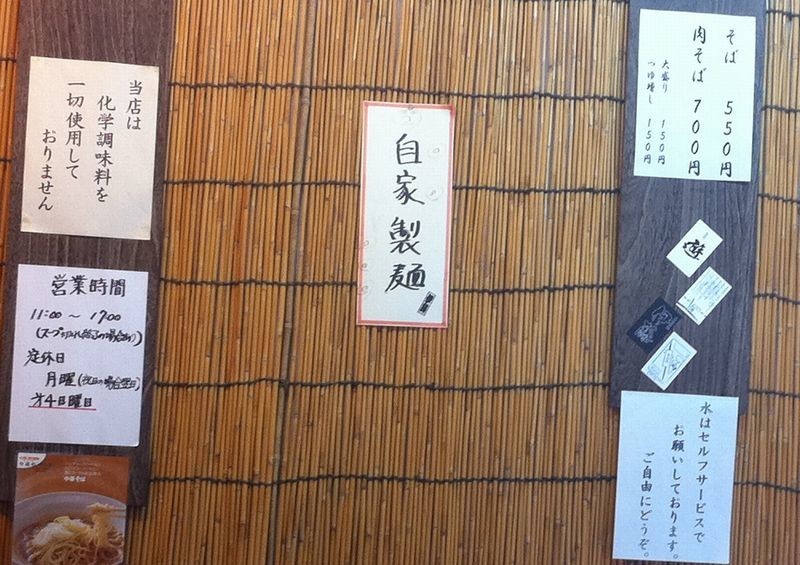 当店は
化学調味料を
一切使用して
おりません
営業時間
11:00 ~ 17:00
(スープ切れ終了の場合あり)
定休日
月曜(祝日の場合翌日)
才4日曜日
中華そば
自家製麺
そば 550円
肉そば 700円
大盛り 150円
つゆ増し 150円
遊
水はセルフサービスで
お願いしております。
ご自由にどうぞ。